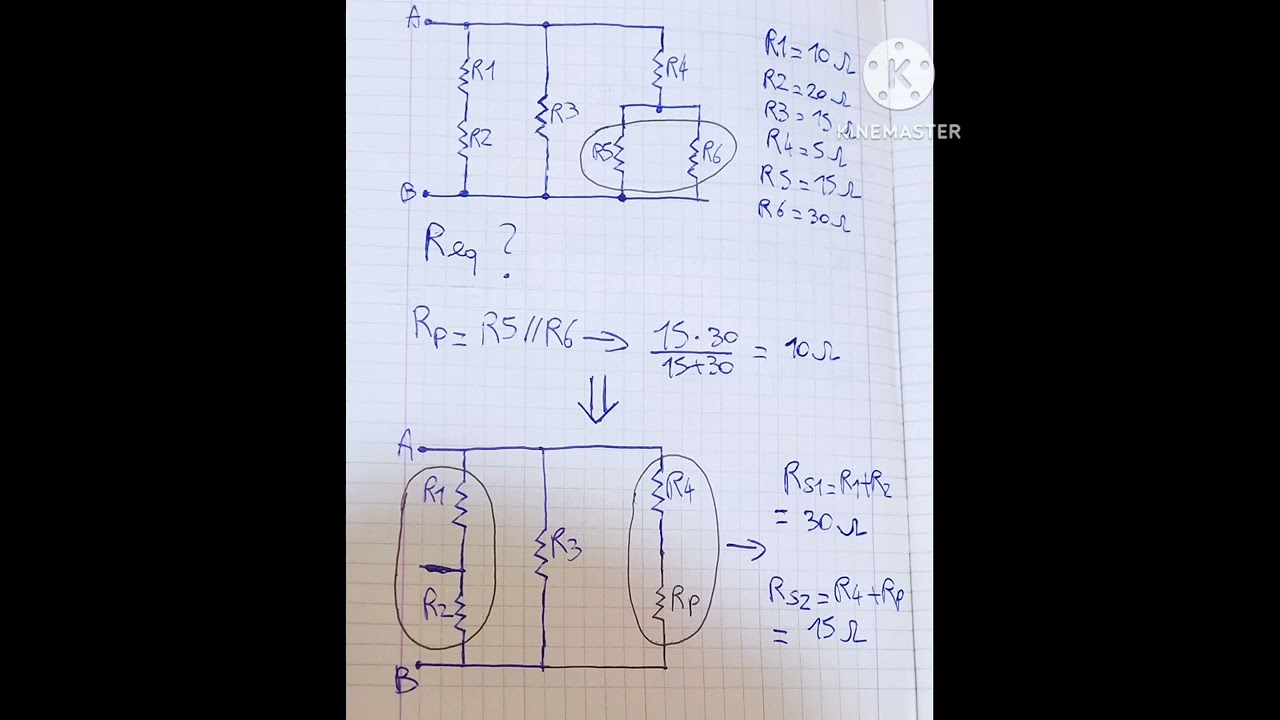 A
R1
R2
R3
R4
R5
R6
B
R1=10Ω
R2=20Ω
R3=15Ω
R4=5Ω
R5=15Ω
R6=30Ω
K
KINEMASTER
Req ?
Rp= R5//R6 → 15·30/15+30 = 10Ω
⇓
A
R1
R2
R3
R4
Rp
B
→
Rs1=R1+R2
= 30Ω
Rs2=R4+Rp
= 15Ω